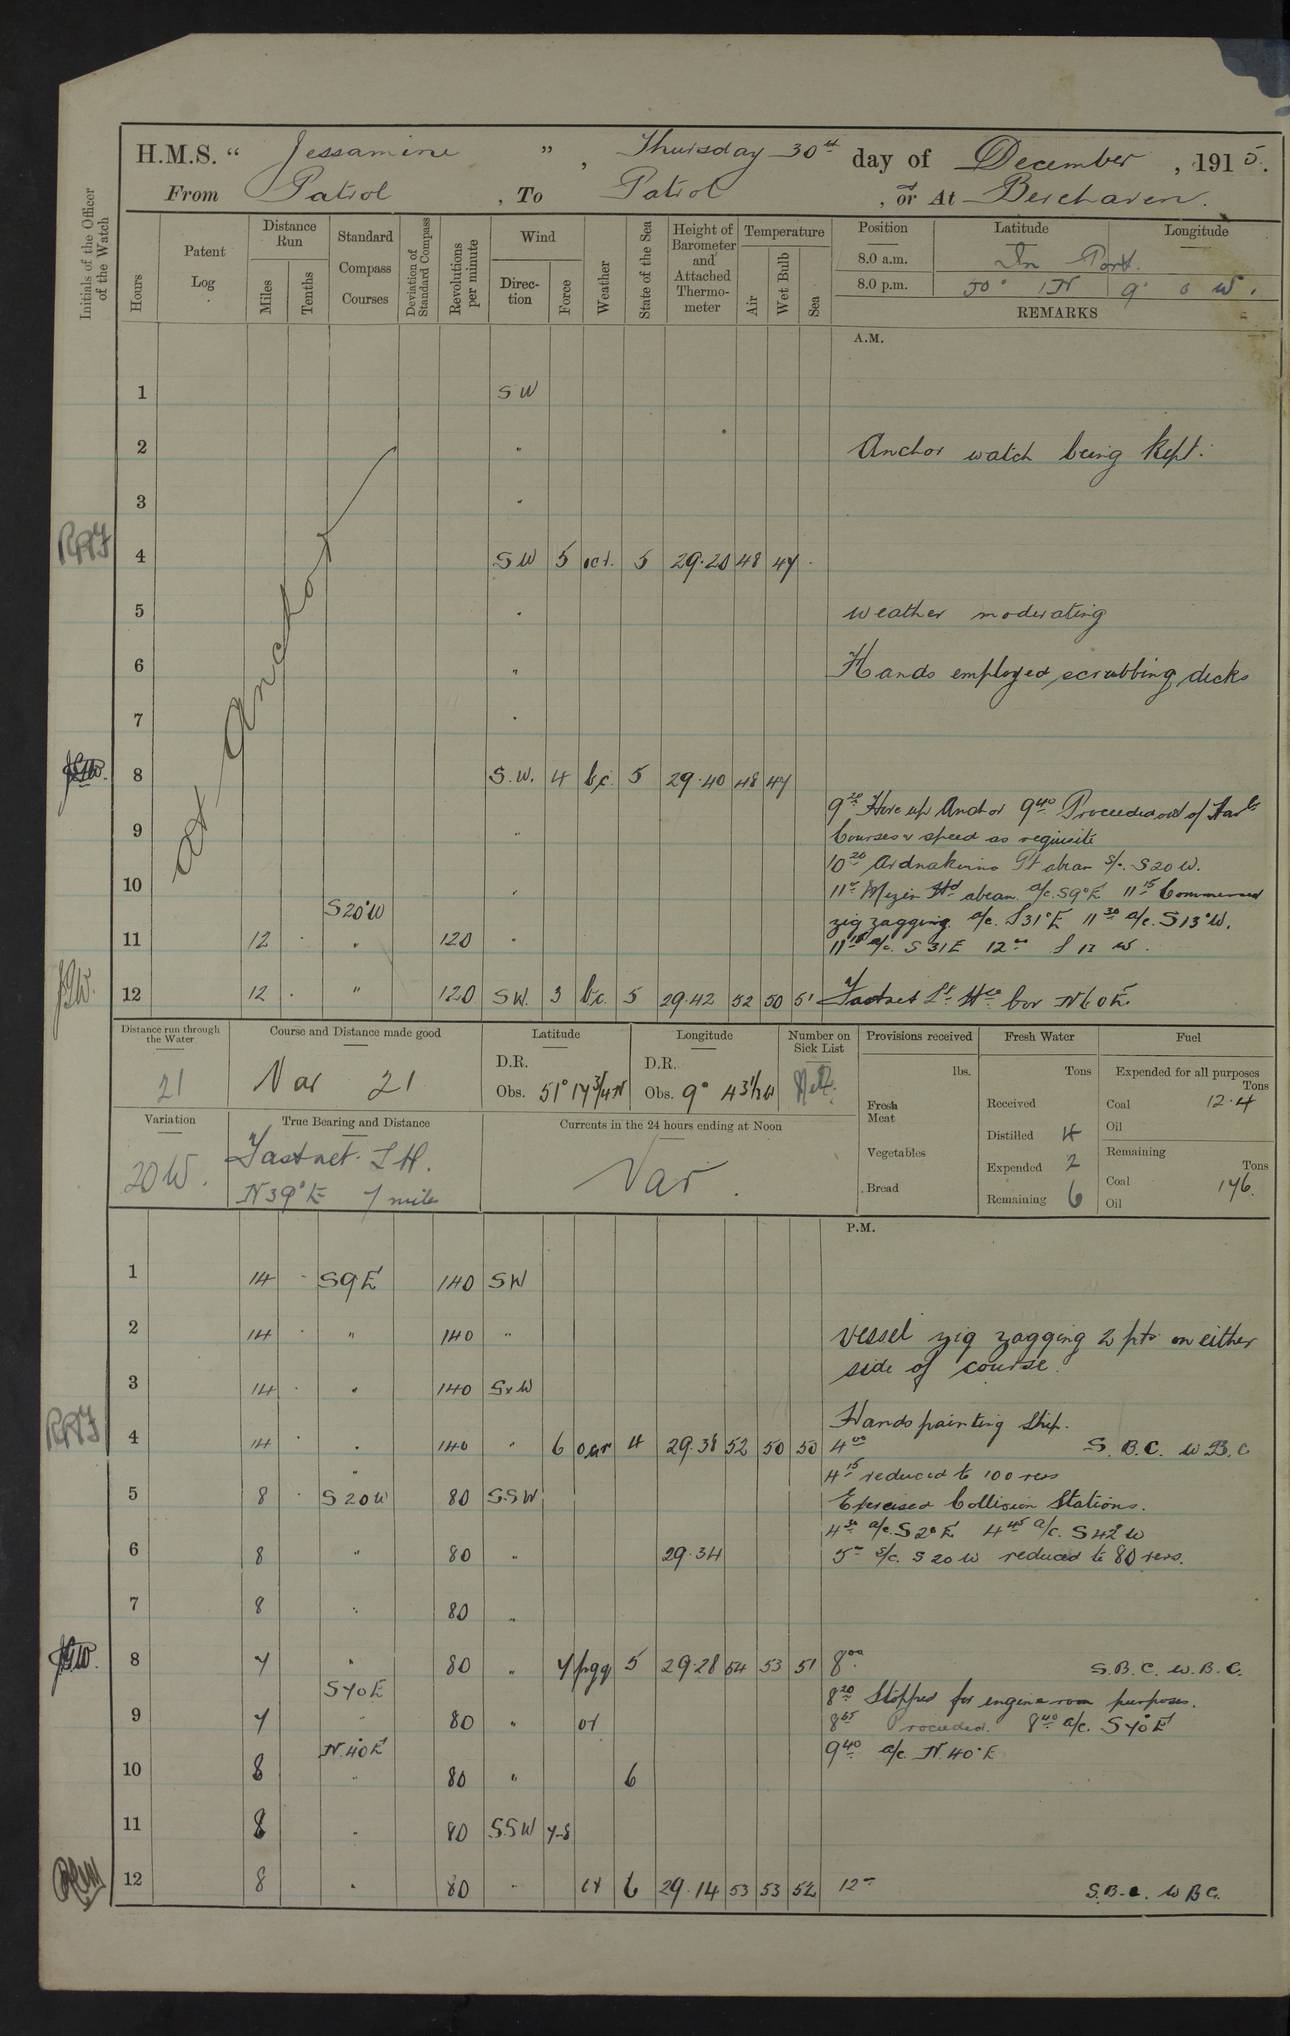 H.M.S. “ Jessamine ” , Thursday 30th day of December , 1915.
From Patrol , To Patrol , or At Berehaven.
Initials of the Officer of the Watch
Hours
Patent Log
Distance Run
Miles
Tenths
Standard Compass Courses
Deviation of Standard Compass
Revolutions per minute
Wind
Direction
Force
Weather
State of the Sea
Height of Barometer and Attached Thermometer
Temperature
Air
Wet Bulb
Sea
Position Latitude Longitude
8.0 a.m. In Port.
8.0 p.m. 50° 1 N 9° 0 W.
REMARKS
A.M.
At Anchor
1 SW
2 " Anchor watch being kept.
3 "
4 SW 5 5 29.20 48 47
5 " weather moderating
6 " Hands employed scrubbing decks
7 "
8 S.W. 4 b.c. 5 29.40 48 47
9 20 Hove up Anchor 9 40 Proceeded out of
9 " Courses & speed as requisite
10 20 Pt abeam S/c. S 20 W.
10 " 11 abeam a/c. S9°E 11 15 Commenced
S20°W zig zagging. a/c. S31°E 11 30 a/c. S13°W.
11 12 . " 120 " a/c. S 31 E 12 00 W.
12 12 . " 120 SW. 3 b.c. 5 29.42 52 50 51 Fastnet Lt. Hse bor N60E.
Distance run through the Water
21
Course and Distance made good
Var 21
Latitude
D.R.
Obs. 51° 17 3/4 N
Longitude
D.R.
Obs. 9° 43 1/2 W
Number on Sick List
Provisions received
lbs.
Fresh Meat
Vegetables
Bread
Fresh Water
Tons
Received
Distilled 4
Expended 2
Remaining 6
Fuel
Expended for all purposes
Tons
Coal 12.4
Oil
Remaining
Tons
Coal 176.
Oil
Variation
20 W.
True Bearing and Distance
Fastnet L H.
N39°E 7 miles
Currents in the 24 hours ending at Noon
Var.
P.M.
1 14 . S9E 140 SW
2 14 . " 140 " vessel zig zagging 2 pts on either
side of course.
3 14 . " 140 SxW
Hands painting Ship.
4 14 " 140 " 6 4 29.38 52 50 50 4 00 S. B.C. W B.C
" 4 15 reduced to 100 revs
5 8 . S 20 W 80 SSW Exercised Collision Stations.
4 30 a/c. S2°E 4 45 a/c. S 42° W
6 8 " 80 " 29.34 5 S/c. S 20 W reduced to 80 revs.
7 8 " 80 "
8 7 " 80 " 7 pgq 5 29.28 54 53 51 8 00 S.B.C. W.B.C.
S70E 8 20 Stopped for engine room purposes.
9 7 " 80 " Proceeded. 8 40 a/c. S 70°E
N.40E 9 40 a/c. N.40°E
10 8 " 80 " 6
11 8 " 80 SSW 7-8
12 8 " 80 " 6 29.14 53 53 52 12 S.B.C. W B C.